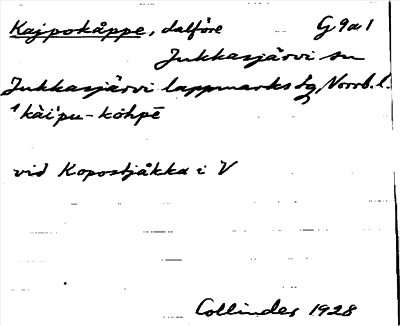 Kajpokåppe, dalföre G 9 a 1
Jukkasjärvi sn
Jukkasjärvi lappmarks dg, Norrb. l.
¹kài'pu-kòhpē
vid Kopostjåkka i V
Collinder 1928